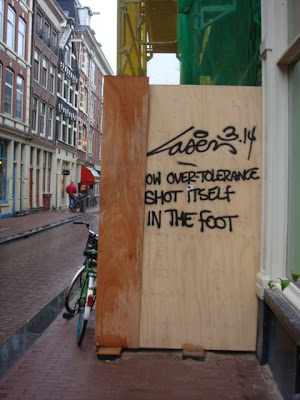 Laser 3.14
OW OVER-TOLERANCE
SHOT ITSELF
IN THE FOOT